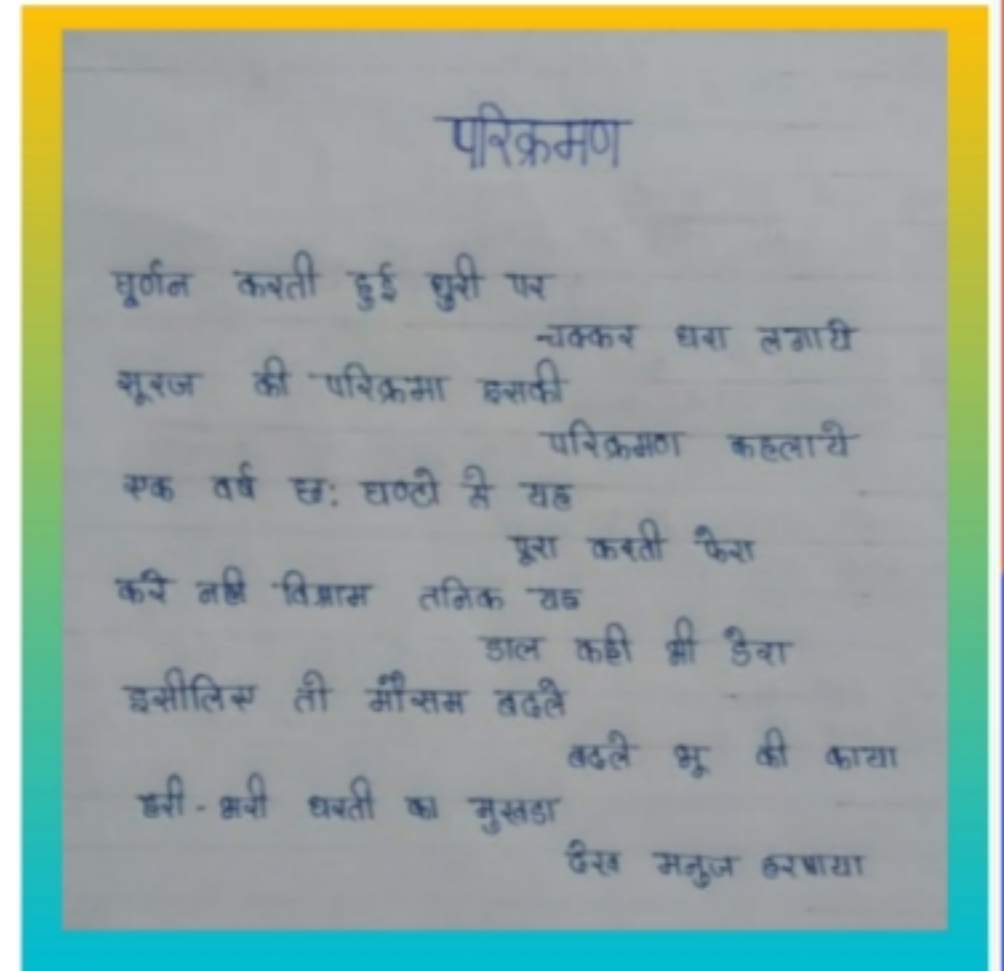 परिक्रमण
घूर्णन करती हुई धुरी पर
चक्कर धरा लगाये
सूरज की परिक्रमा इसकी
परिक्रमण कहलाये
एक वर्ष छ: घण्टो मे यह
पूरा करती फेरा
करे नही विश्राम तनिक यह
डाल कही भी डेरा
इसीलिए तो मौसम बदले
बदले भू की काया
हरी-भरी धरती का मुखडा
देख मनुज हरषाया